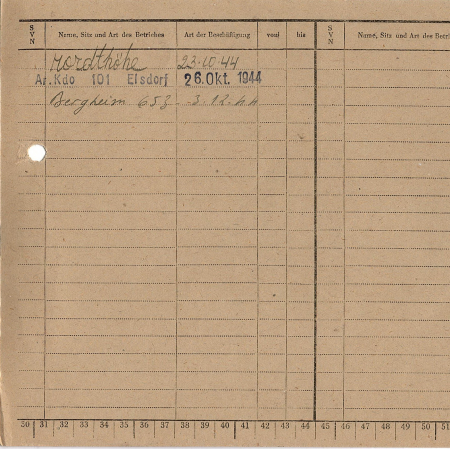 SVN Name, Sitz und Art des Betriebes Art der Beschäftigung von bis SVN Name, Sitz und Art des Betri
Nordthöhe 23.10.44
Ar.Kdo 101 Elsdorf 26.Okt. 1944
Bergheim 653 3.12.44
30 31 32 33 34 35 36 37 38 39 40 41 42 43 44 45 46 47 48 49 50 51